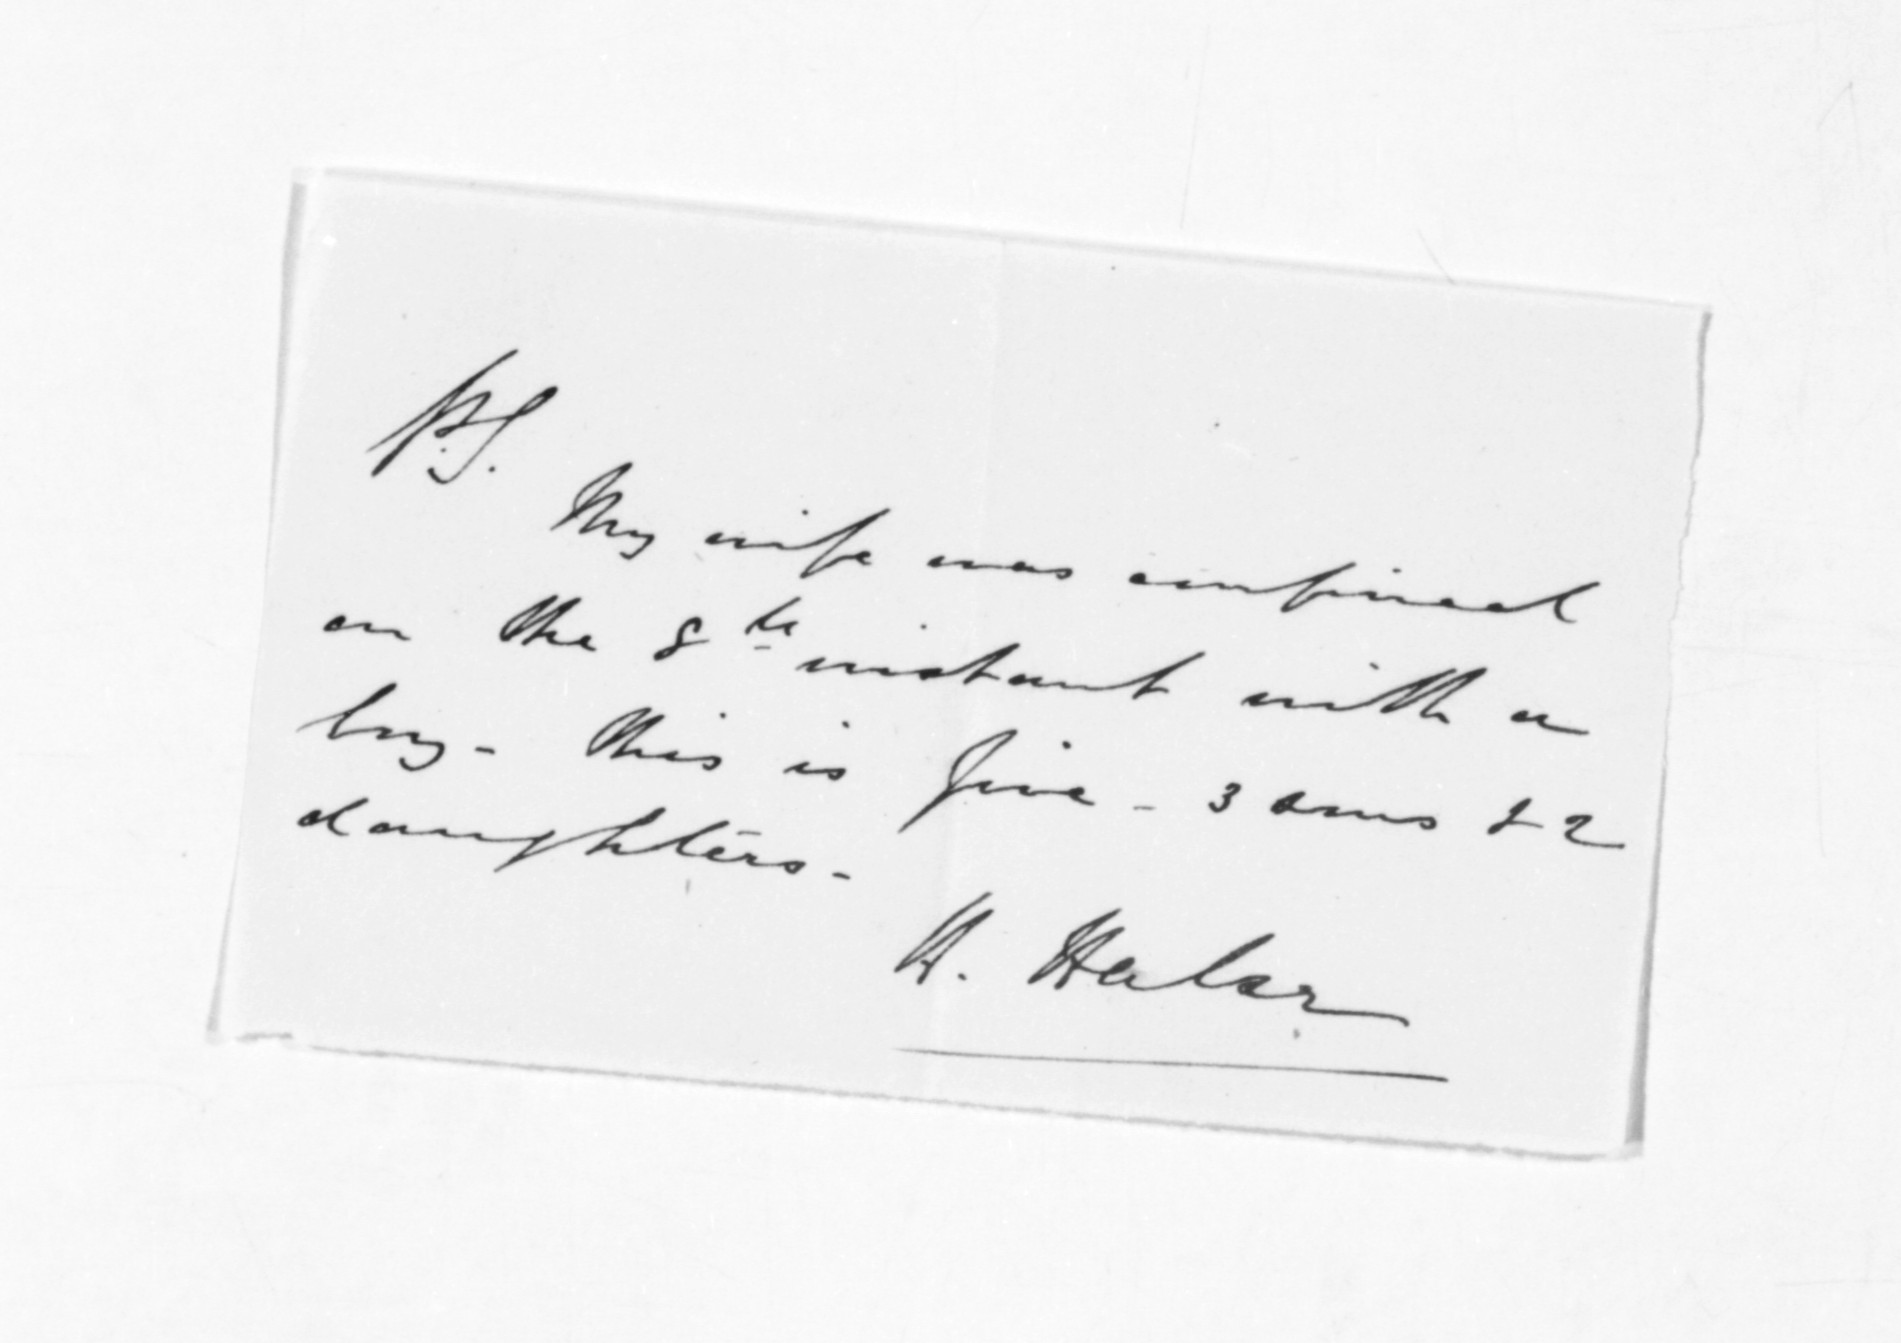 P.S.
My wife was confined
on the 8th instant with a
boy - this is five - 3 sons & 2
daughters -
H. Halse